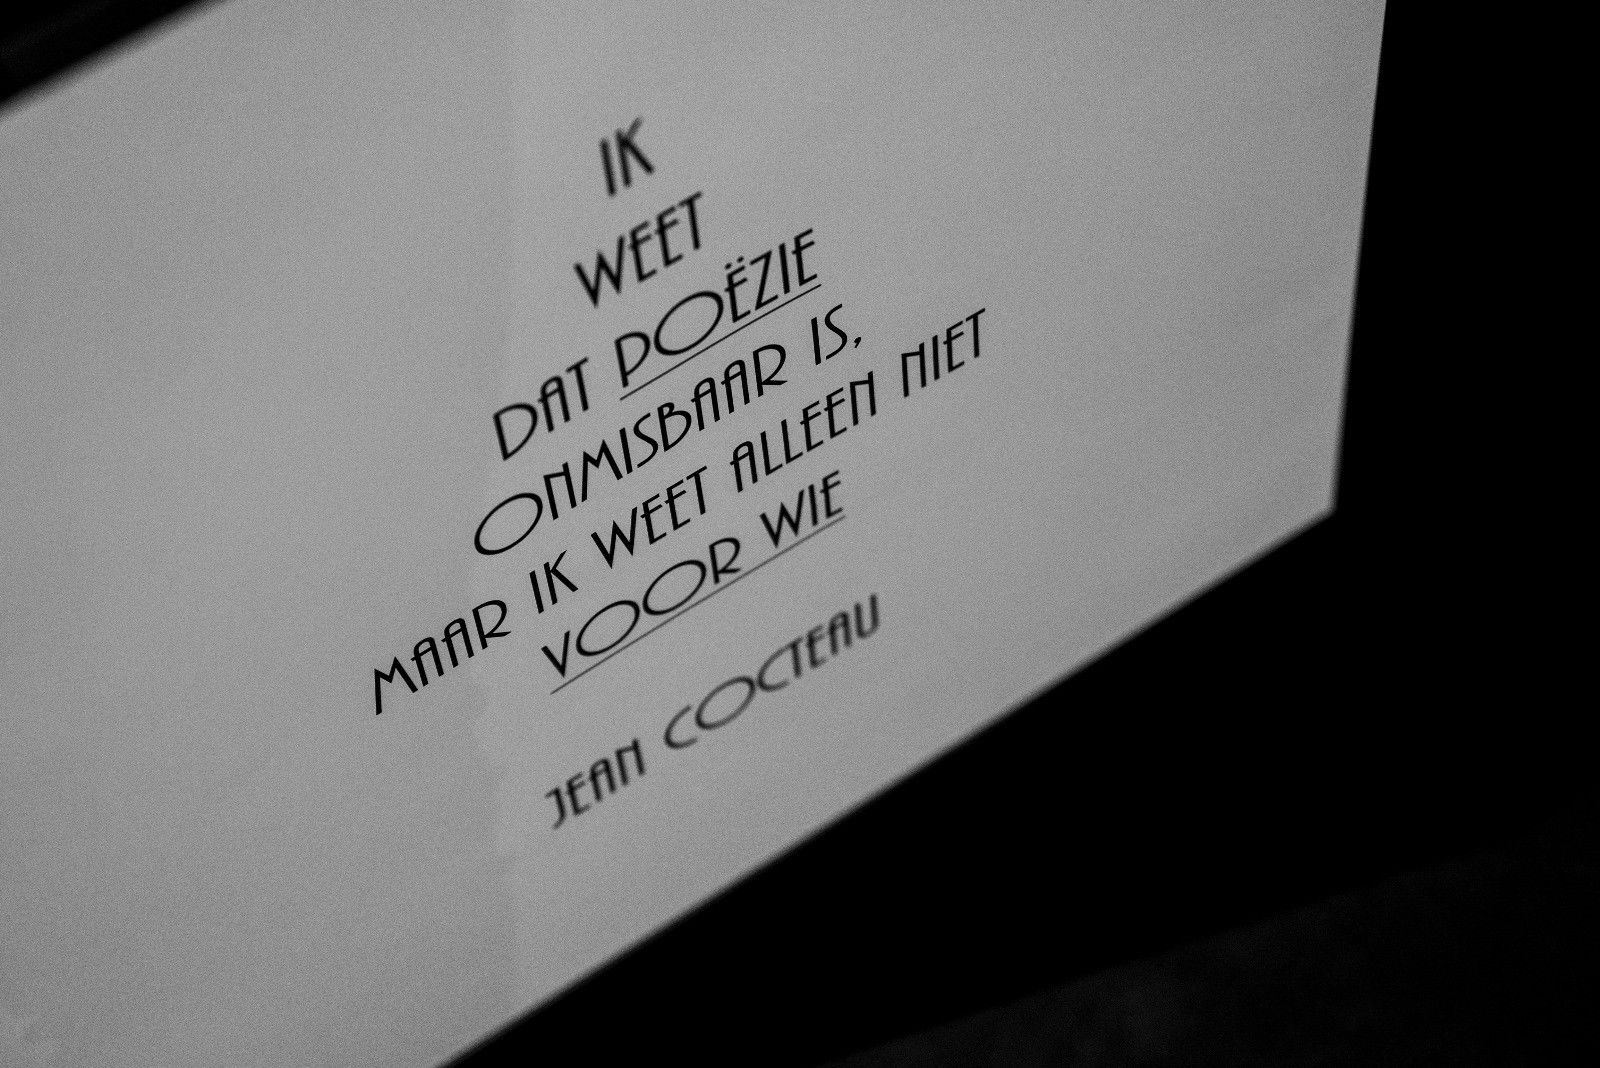 IK
WEET
DAT POËZIE
ONMISBAAR IS,
MAAR IK WEET ALLEEN NIET
VOOR WIE
JEAN COCTEAU